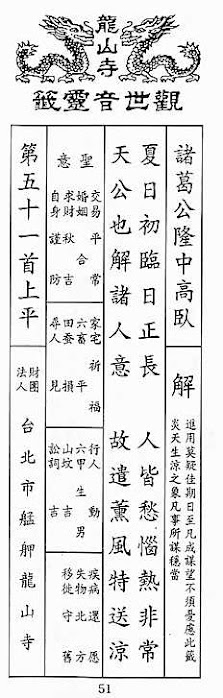 龍山寺
觀世音靈籤
諸葛公隆中高臥
解
進用莫疑佳期日至凡成謀望不須憂慮此籤
炎天生涼之象凡事所謀穩當
夏日初臨日正長 人皆愁惱熱非常
天公也解諸人意 故遣薰風特送涼
聖意
交易 平常
婚姻 合
求財 秋吉
自身 謹防
家宅 祈福
六畜 平
田蚕 損
尋人 見
行人 動
六甲 生男
山墳 吉
訟詞 吉
疾病 還愿
失物 北方
移徙 守舊
第五十一首上平
財團法人
台北市艋舺龍山寺
51